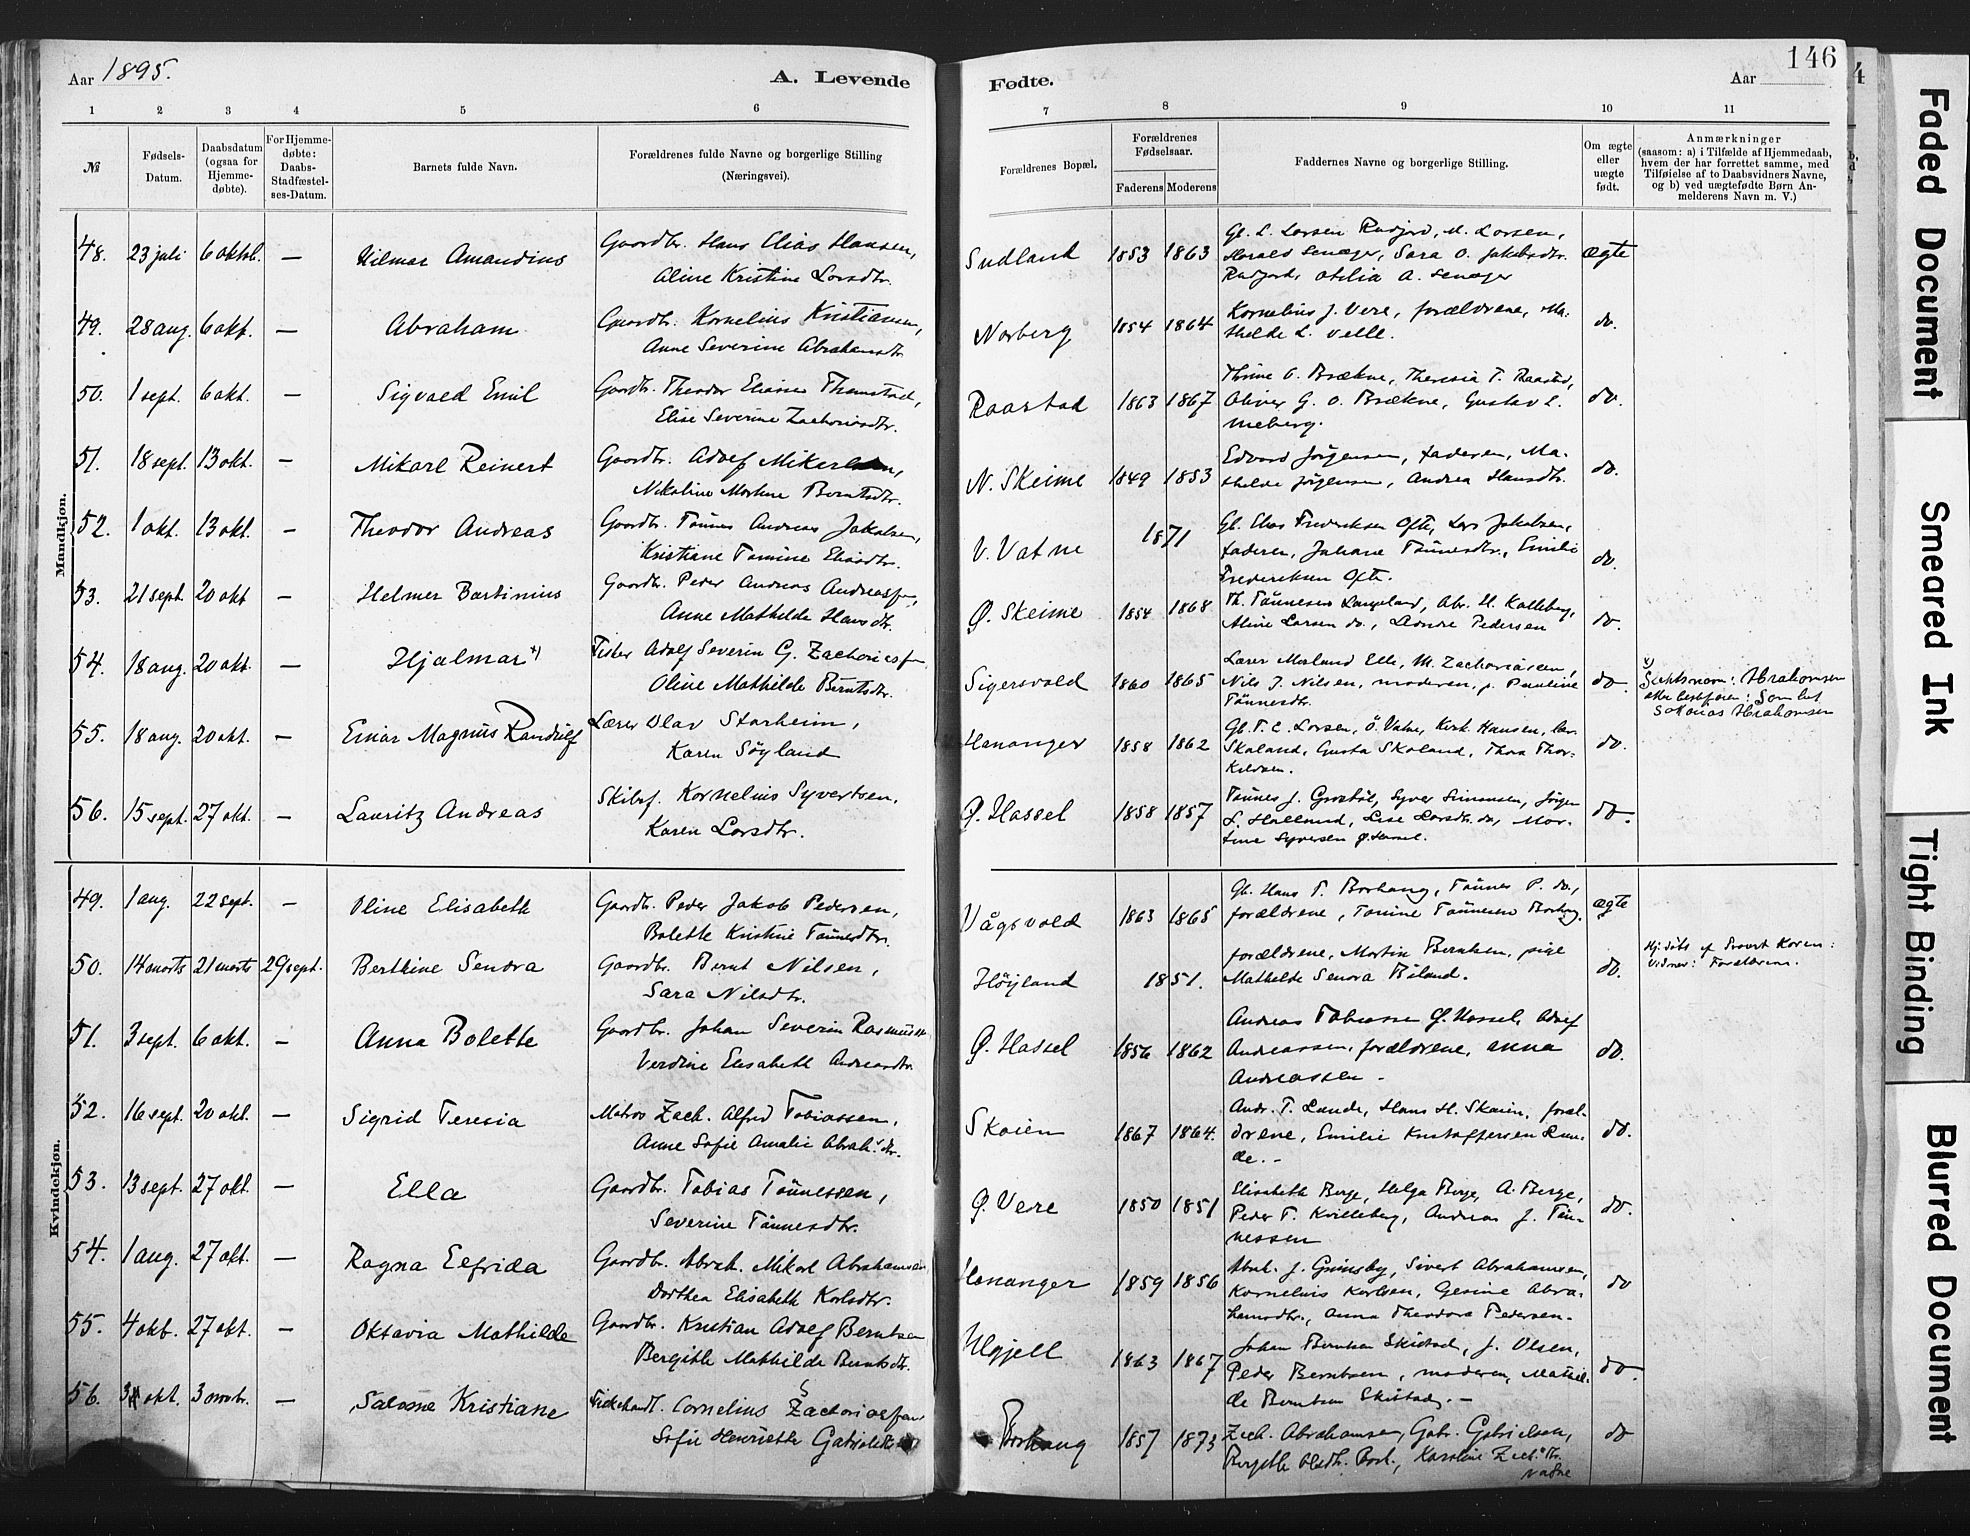 Aar 1895.
A. Levende
Fødte.
Aar
146
1 2 3 4 5 6
7 8 9 10 11
№
Fødsels-
Datum.
Daabsdatum
(ogsaa for
Hjemme-
døbte).
For Hjemme-
døbte:
Daabs-
Stadfæstel-
ses-Datum.
Barnets fulde Navn.
Forældrenes fulde Navne og borgerlige Stilling
(Næringsvei).
Forældrenes Bopæl.
Forældrenes
Fødselsaar.
Faderens Moderens
Faddernes Navne og borgerlige Stilling.
Om ægte
eller
uægte
født.
Anmærkninger
(saasom: a) i Tilfælde af Hjemmedaab,
hvem der har forrettet samme, med
Tilføielse af to Daabsvidners Navne,
og b) ved uægtefødte Børn An-
melderens Navn m. V.)
Mandkjøn.
48. 23 juli 6 oktob. — Hilmar Amandius
Gaardbr. Hans Elias Hansen,
Aline Kristine Larsdtr.
Sudland 1853 1863
Gb. L. Larsen Rudjord, M. Larsen,
Sara O. Jakobsdtr.
Rudjord, Otilia A.
ægte
49. 28 aug. 6 okt. — Abraham
Gaardbr. Kornelius Kristiansen,
Anne Severine Abrahamsdtr.
Norberg 1854 1864
Kornelius J. Vere, forældrene, Ma-
thilde L. Velle.
do.
50. 1 sept. 6 okt. — Sigvald Emil
Gaardbr. Theodor Eliassen
Elise Severine Zachariasdtr.
Raastad 1863 1867
Thrine O. Brækne, Theresia T. Raastad,
Oliver G. O. Brækne, Gustav L.
Meberg.
do.
51. 18 sept. 13 okt. — Mikael Reinert
Gaardbr. Adolf
Nikoline Marthine Berntsdtr.
N. Skeime 1849 1853
Edvard Jörgensen, faderen, Ma-
thilde Jörgensen, Andrea Hansdtr.
do.
52. 1 okt. 13 okt. — Theodor Andreas
Gaardbr. Tönnes Andreas Jakobsen,
Kristiane Tomine Eliasdtr.
V. Vatne 1871
Gb. Elias Frederiksen Ofte, Lars Jakobsen,
faderen, Johane Tönnesdtr., Emilie
Frederiksen Ofte.
do.
53. 21 sept. 20 okt — Helmer Bartinius
Gaardbr. Peder Andreas Andreassen,
Anne Mathilde Hansdtr.
Ø. Skeime 1854 1868
Th. Tönnesen Langeland, Abr. H. Kalleberg,
Aline Larsen do., Pedersen
do.
54. 18 aug. 20 okt. — Hjalmar *)
Fisker Adolf Severin G. Zachariassen
Oline Mathilde Berntsdtr.
Sigersvold 1860 1865
Lærer Morland Elle, M. Zachariassen,
Nils J. Nilsen, moderen, p. Pauline
Tönnesdtr.
do.
*)
Slektsnavn: Abrahamsen
etter bestefaren: Som het
Sakarias Abrahamsen
55. 18 aug. 20 okt. — Einar Magnus Randulf
Lærer Olav Starheim,
Karen Söyland
Hananger 1858 1862
Gb. T. C. Larsen, Ö. Vatne, Kirk. Hansen, lær.
Skoland, Gusta Skoland, Thora Thor-
kildsen.
do.
56. 15 sept. 27 okt. — Lauritz Andreas
Skibsf. Kornelius Syvertsen,
Karen Larsdtr.
Ø. Hassel 1858 1857
Tönnes J. Syver Simonsen, Jörgen
S. Lise Larsdtr. do, Mar-
tine Syversen Ø. Hassel.
do.
Kvindekjøn.
49. 1 aug. 22 sept. — Oline Elisabeth
Gaardbr. Peder Jakob Pedersen,
Bolette Kristine Tönnesdtr.
Vågsvold 1863 1865
Gb. Hans P. Borhaug, Tönnes P. do.,
forældrene, Tomine Tönnesen Borhaug.
ægte
50. 14 marts 21 marts 29 sept. Berthine Sendra
Gaardbr. Bernt Nilsen,
Sara Nilsdtr.
Höyland 1851.
forældrene, Martin Berntsen, pige
Mathilde Senora Biland.
do.
Hj. döbt af Provst Koren:
Vidner: Forældrene.
51. 3 sept. 6 okt. — Anna Bolette
Gaardbr. Johan Severin Rasmussen
Verdine Elisabeth Andreasdtr.
Ø. Hassel 1856 1862
Andreas Tobiassen Ø. Hassel, Adolf
Andreassen, forældrene, Anna
Andreassen -
do.
52. 16 sept. 20 okt. — Sigrid Teresia
Matros Zach. Alfred Tobiassen,
Anne Sofie Amalie Abrah.dtr.
Skoien 1867 1864.
Andr. T. Lunde, Hans H. Skoien, foræl-
drene, Emilie Kristoffersen Lun-
de. -
do.
53. 13 sept. 27 okt. — Ella
Gaardbr. Tobias Tönnessen,
Severine Tönnesdtr.
Ø. Vere 1850 1851
Elisabeth Berge, Helga Berge, A. Berge,
Peder T. Kvilleberg, Andreas J. Tön-
nessen
do.
54. 1 aug. 27 okt. — Ragna Elfrida
Gaardbr. Abrah. Mikael Abrahamsen,
Dorthea Elisabeth Karlsdtr.
Hananger 1859 1856
Abrah. J. Grimsby, Sivert Abrahamsen,
Kornelius Karlsen, Gesine Abra-
hamsdtr., Anna Theodora Pedersen.
do
55. 4 okb. 27 okt. — Oktavia Mathilde
Gaardbr. Kristian Adolf Berntsen
Bergitte Mathilde Berntsdtr.
Ulgjell 1863 1867
Johan Berntsen Skistad, J. Olsen,
Peder Berntsen, moderen, Mathil-
de Berntsen Skistad. -
do.
56. 3 okt. 3 novbr. — Salome Kristiane
Fiskehandl. Cornelius Zachariassen
Sofie Henriette
Borhaug 1857 1873
Zach. Abrahamsen, Gabr. Gabrielsen,
Bergitte Olsdtr. Borh., Karoline Zach.dtr.
Vatne
do
Faded Document
Smeared Ink
Tight Binding
Blurred Document